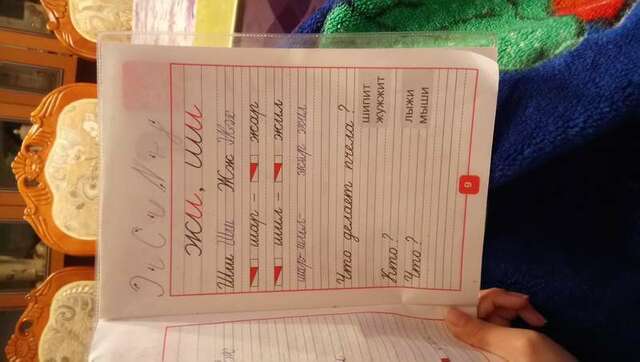 жи, ши
Шш Шш Жж Жж
шар – жар
шил – жил
шар шил жар жил
Что делает пчела?
шипит
жужжит
Кто?
Что?
лыжи
мыши
9